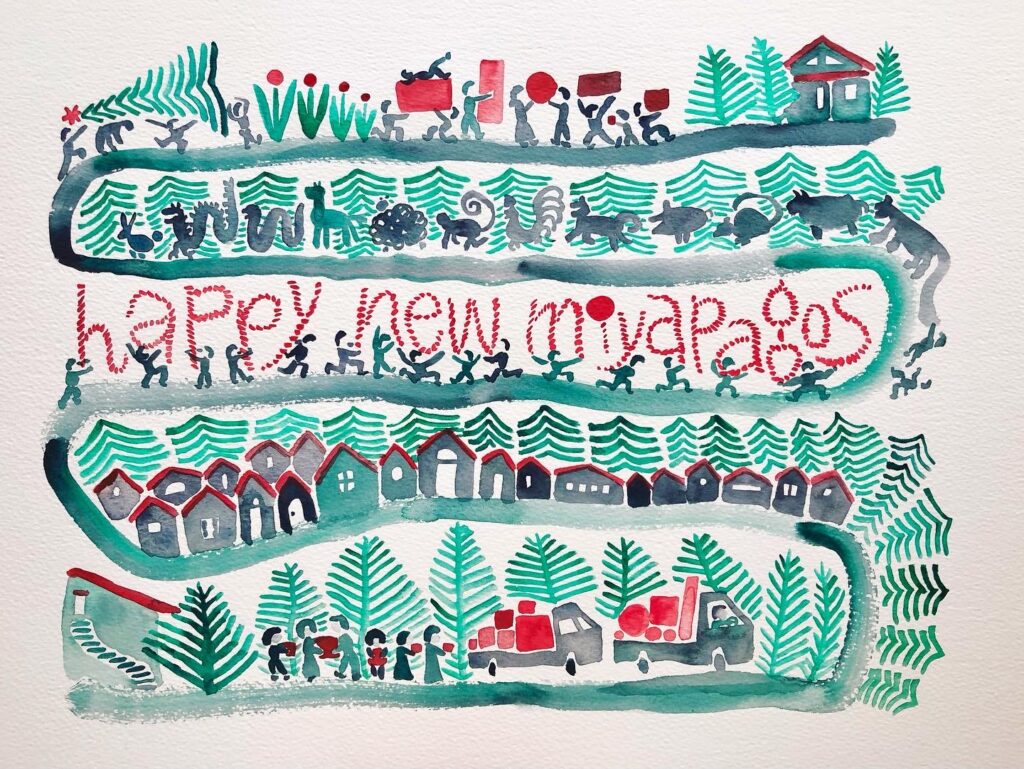 happy new miyapagos